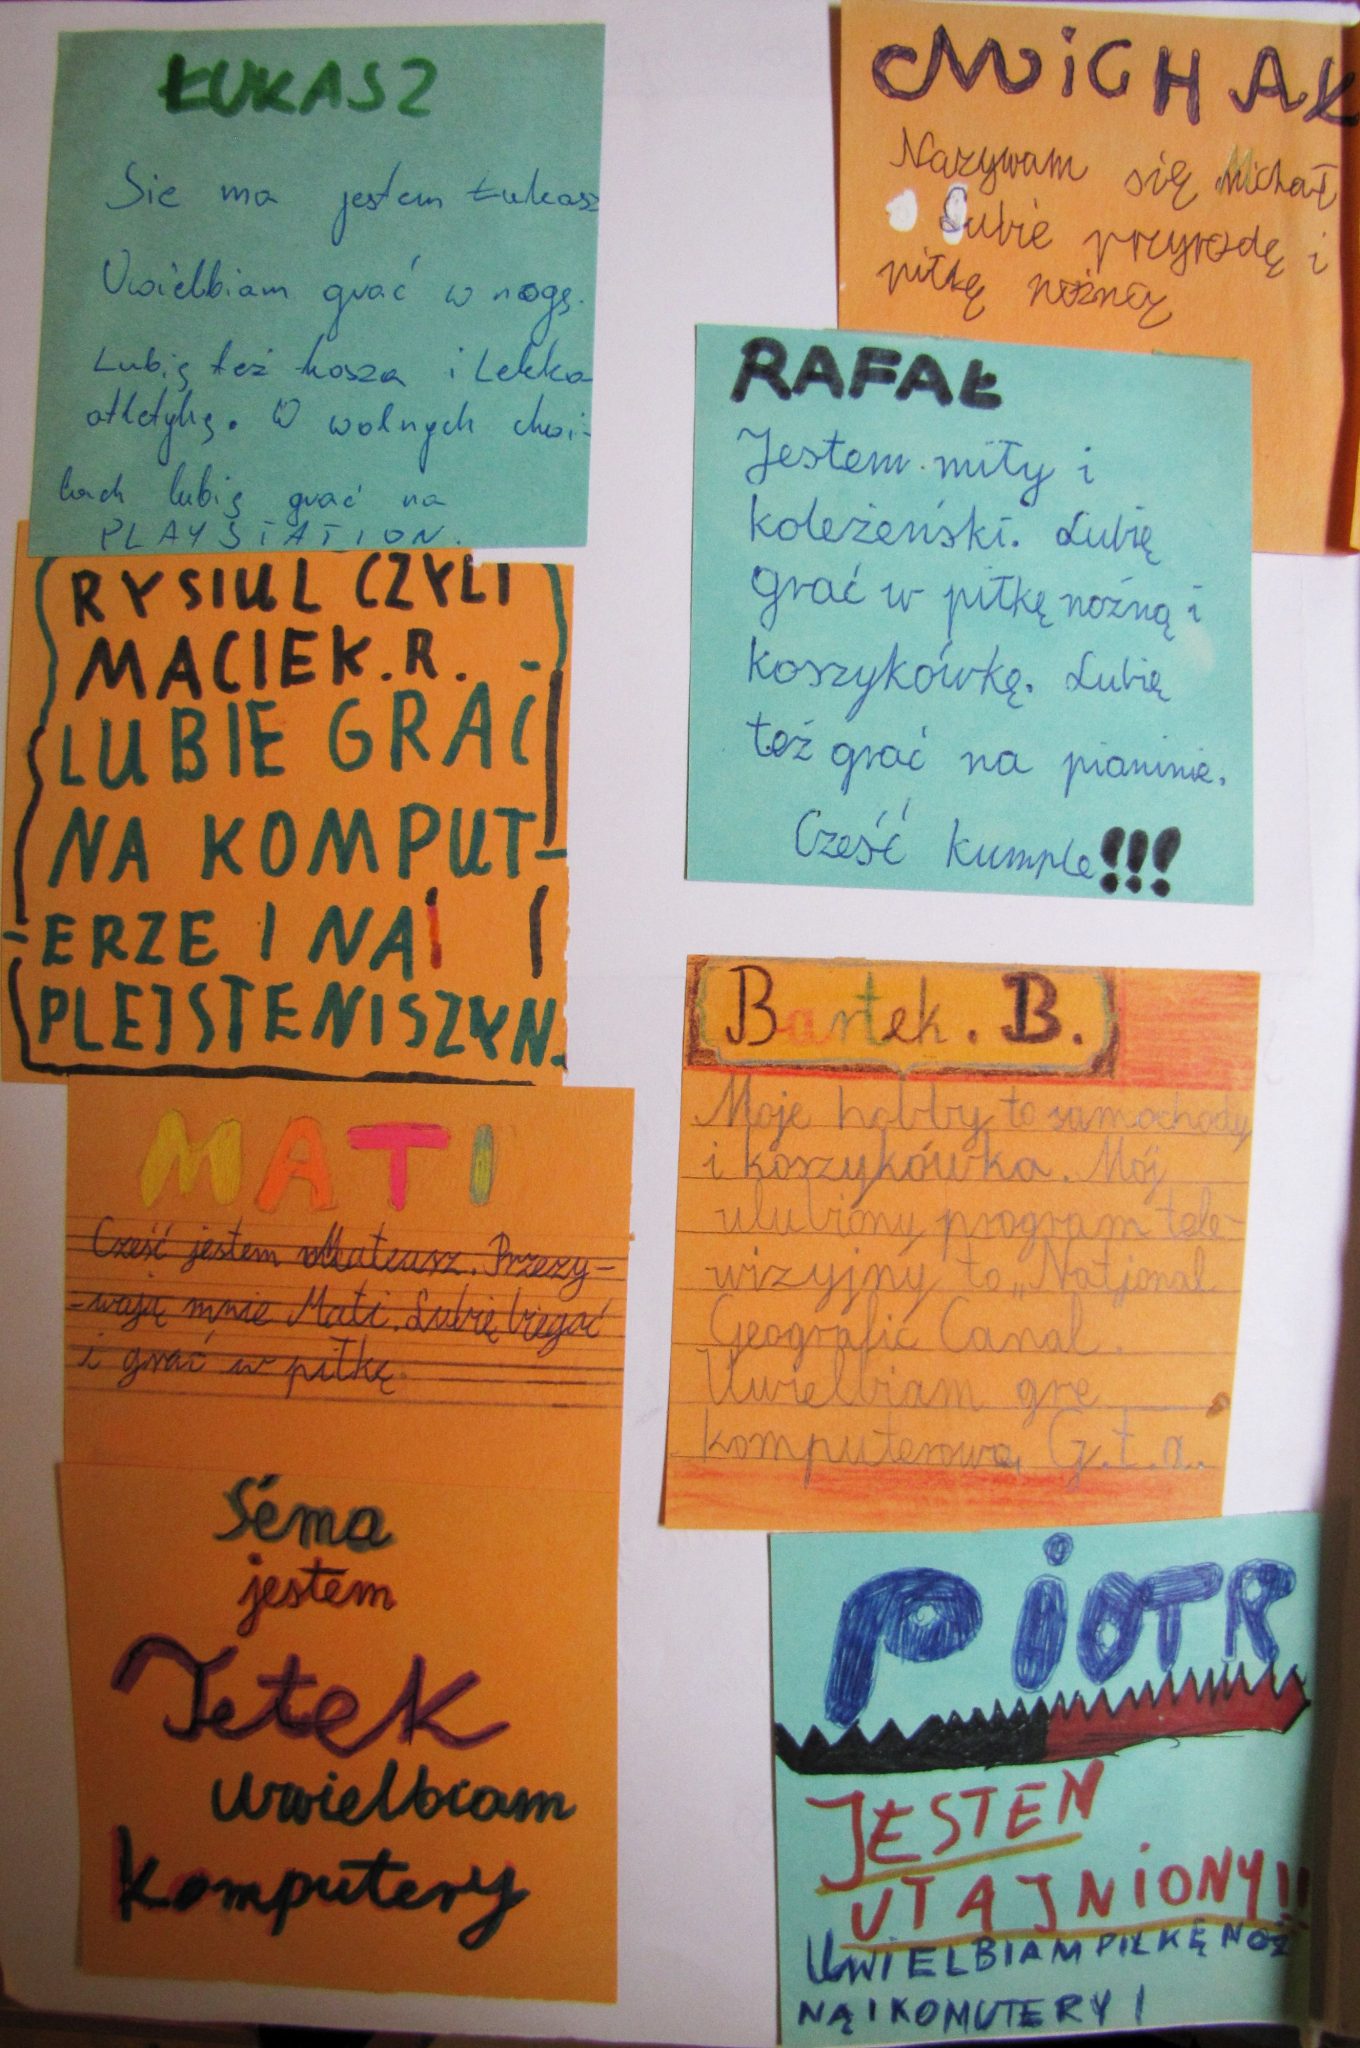 ŁUKASZ
Sie ma jestem Łukasz
Uwielbiam grać w nogę.
Lubię też kosza i Lekko
atletykę. W wolnych chwi-
lach lubię grać na
PLAYSTATION.
RYSIUL CZYLI
MACIEK.R.
LUBIE GRAĆ
NA KOMPUT-
-ERZE I NA
PLEJSTENISZYN.
MATI
Cześć jestem Mateusz. Przezy-
-wają mnie Mati. Lubię biegać
i grać w piłkę.
Séma
jestem
Jetek
uwielbiam
komputery
MiCHAŁ
Nazywam się Michał
Lubie przyrodę i
piłkę nożnąy
RAFAŁ
Jestem miły i
koleżeński. Lubię
grać w piłkę nożną i
koszykówkę. Lubię
też grać na pianinie.
Cześć kumple!!!
Bartek. B.
Moje hobby to samochody
i koszykówka. Mój
ulubiony program tele-
wizyjny to „Natjonal
Geografic Canal.
Uwielbiam grę
komputerową G.t.a.
PiOTR
JESTEM
UTAJNIONY!!
UWIELBIAM PIŁKĘ NOŻ
NĄ I KOMUTERY!